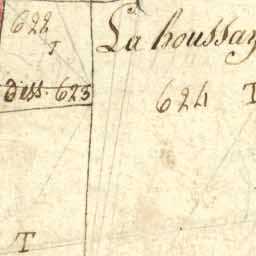 622
T
La houssay
diss. 623
624 T
T